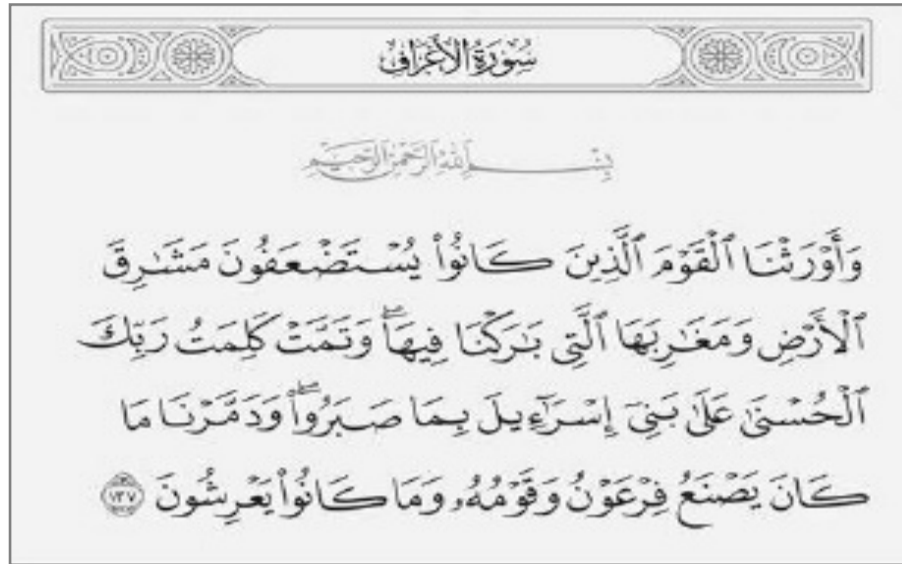 سُورَةُ الأَعْرَافِ
بِسْمِ ٱللَّهِ ٱلرَّحْمَٰنِ ٱلرَّحِيمِ
وَأَوْرَثْنَا ٱلْقَوْمَ ٱلَّذِينَ كَانُوا۟ يُسْتَضْعَفُونَ مَشَٰرِقَ
ٱلْأَرْضِ وَمَغَٰرِبَهَا ٱلَّتِى بَٰرَكْنَا فِيهَاۖ وَتَمَّتْ كَلِمَتُ رَبِّكَ
ٱلْحُسْنَىٰ عَلَىٰ بَنِىٓ إِسْرَٰٓءِيلَ بِمَا صَبَرُوا۟ۖ وَدَمَّرْنَا مَا
كَانَ يَصْنَعُ فِرْعَوْنُ وَقَوْمُهُۥ وَمَا كَانُوا۟ يَعْرِشُونَ ١٣٧